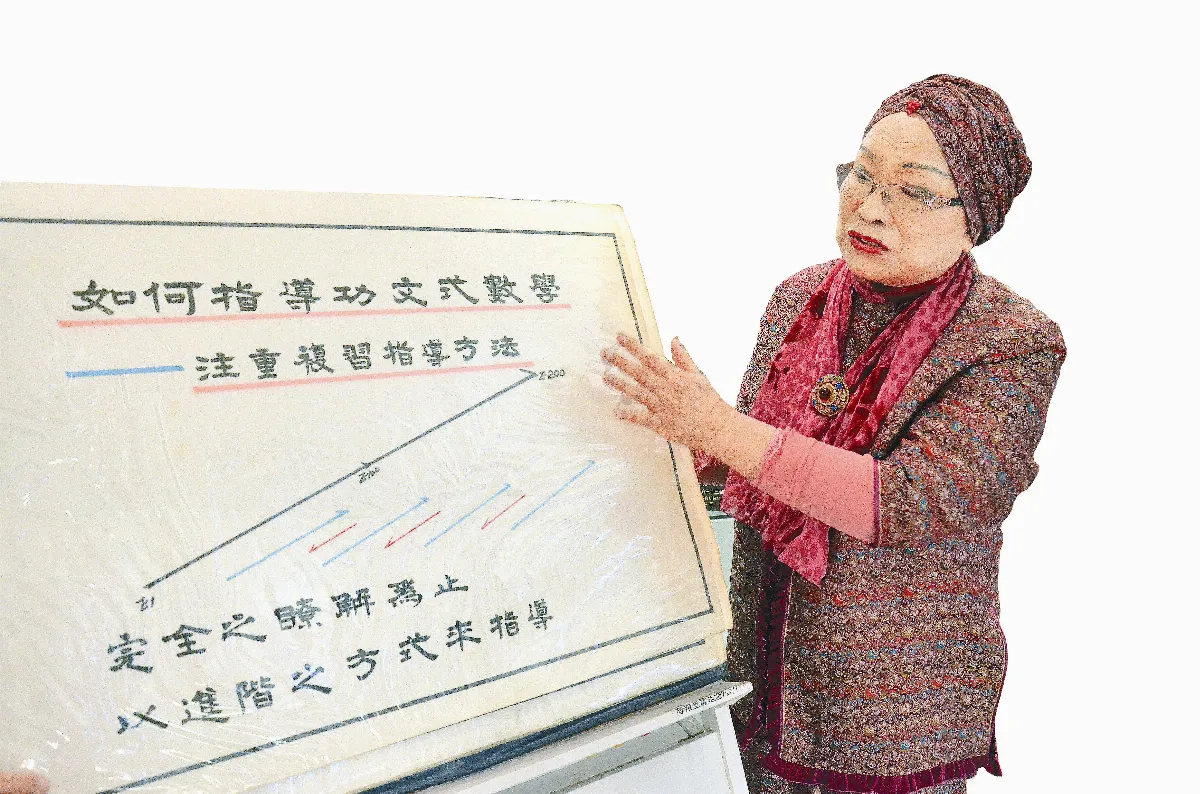 如何指導功文式數學
注重複習指導方法
Z200
Z1
完全之瞭解為止
以進階之方式來指導